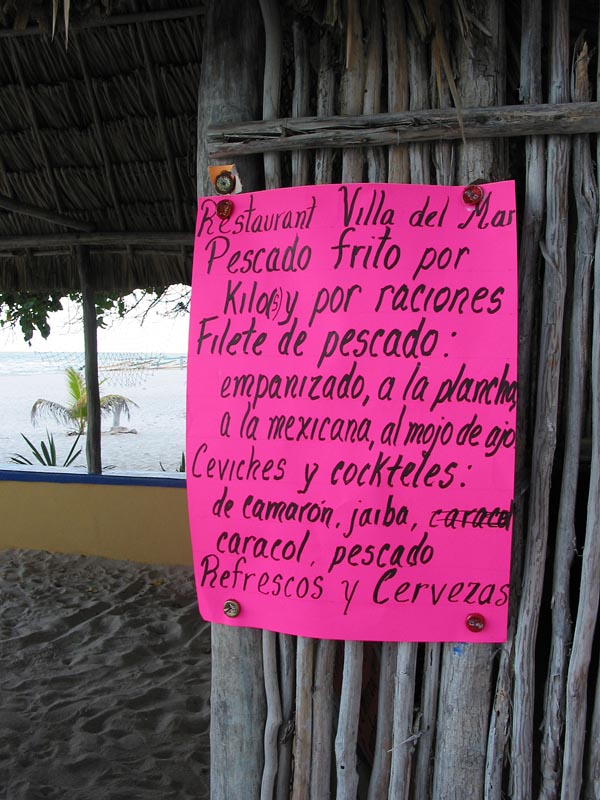 Restaurant Villa del Mar
Pescado frito por
Kilo(s) y por raciones
Filete de pescado:
empanizado, a la plancha,
a la mexicana, al mojo de ajo
Ceviches y cockteles:
de camarón, jaiba, caracol
caracol, pescado
Refrescos y Cervezas